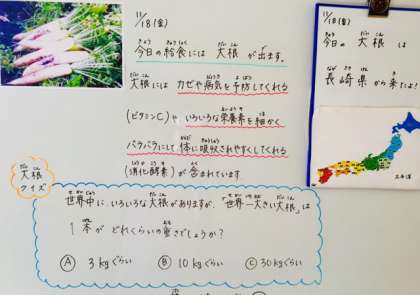 11/18(金)
今日の給食には 大根が出ます。
大根には カゼや病気を予防してくれる
(ビタミンC)や いろいろな栄養素を細かく
バラバラにして 体に吸収されやすくしてくれる
(消化酵素)が 含まれています
大根
クイズ
世界中に、いろいろな大根がありますが、「世界一大きい大根」は
1本が どれくらいの重さでしょうか?
Ⓐ 3kgぐらい Ⓑ 10kgぐらい Ⓒ 30kgぐらい
11/18(金)
今日の 大根 は
長崎県から来たよ!